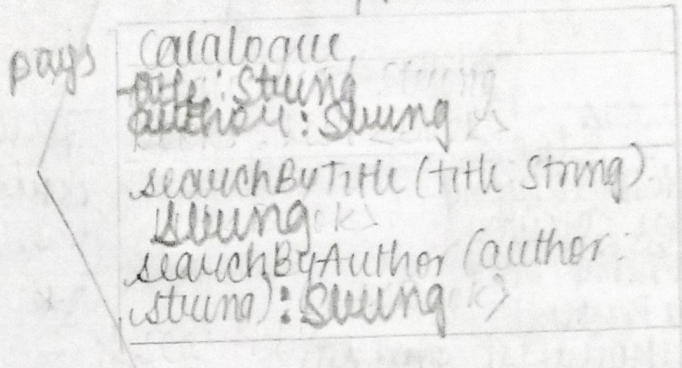 pays
Catalogue
-title : String
author : String
searchByTitle (title String)
String
searchByAuthor (author :
string) : String